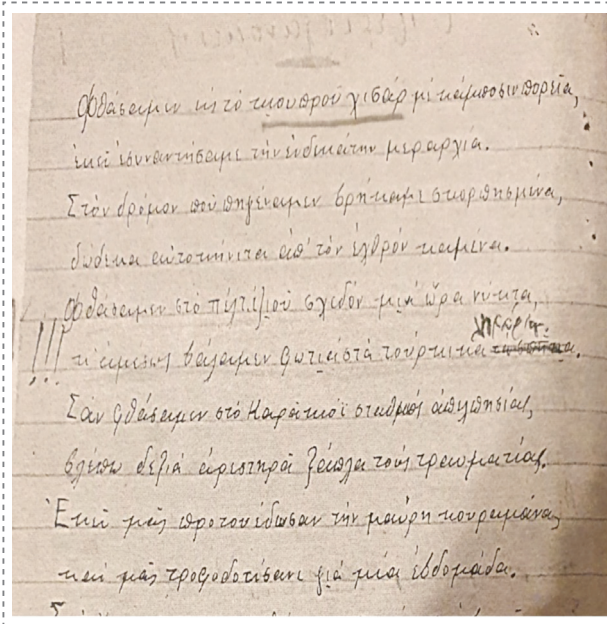 Φθάσαμεν εις τό κιουπρού χισάρ μέ κάμποσιν πορεία,
εκεί εσυναντήσαμε τήν ενδεκάτην μεραρχία.
Στόν δρόμον πού πηγέναμεν βρήκαμε σκορπησμένα,
δώδεκα αυτοκίνητα απ' τόν εχθρόν καμένα.
Φθάσαμεν στό σχεδόν μιά ώρα νυκτα,
!!! κι αμέσως βάλαμεν φωτιά στά τούρκικα
Σάν φθάσαμεν στό Καράκιοϊ σταθμός απελπησίας,
βλέπω δεξιά αριστηρά ξάπλα τούς τραυματίας.
Εκεί μάς πρωτουέδωσαν τήν μαύρη κουραμάνα,
καί μάς τροφοδοτίσανε γιά μία εβδομάδα.